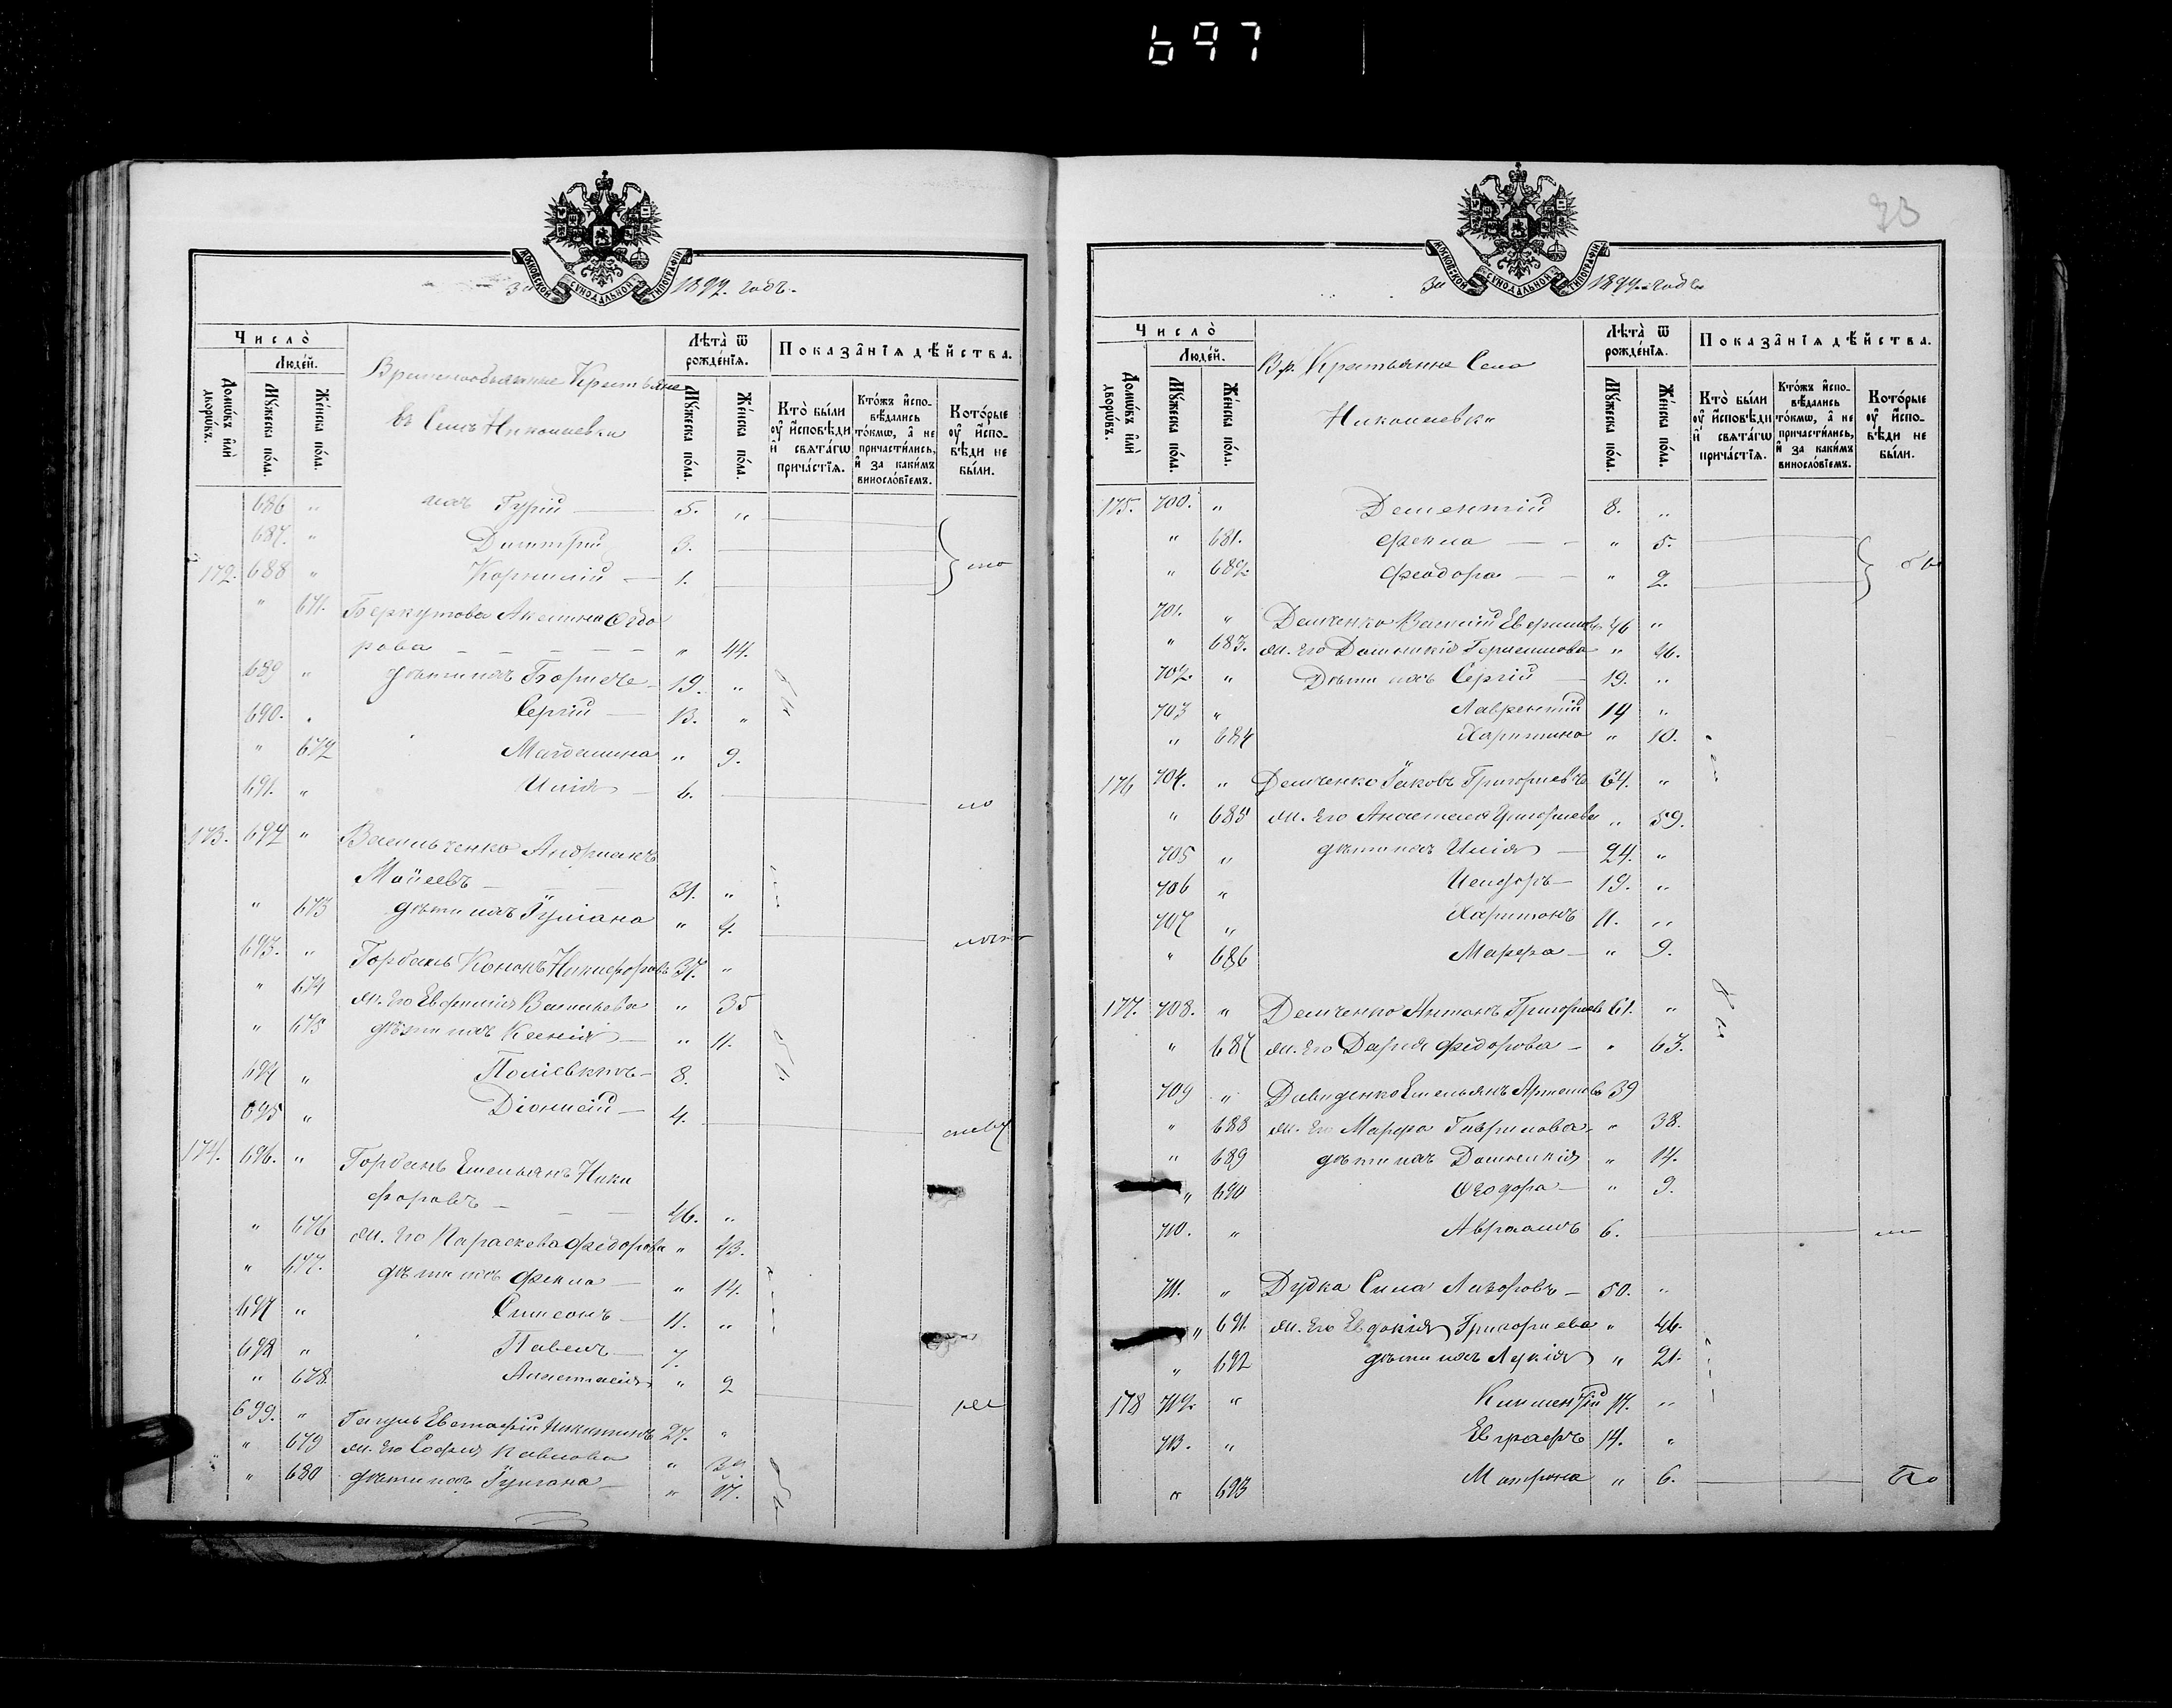 697
МОСКОВСКОЙ СѴНОДАЛЬНОЙ ТИПОГРАФІИ
За 1892. годъ.
Число̀
Людє́й.
Домѡ́въ и҆лѝ дворѡ́въ.
Мꙋ́жеска по́ла.
Же́нска по́ла.
Временнообязанные Крестьяне
въ Селѣ Николаевки
Лѣта̀ ѿ рожде́нїѧ.
Мꙋ́жеска по́ла.
Же́нска по́ла.
Показа̑нїѧ дѣ́йства.
Кто̀ бы́ли ᲂу҆ и҆́сповѣди и҆ свѧта́гѡ прича́стїѧ.
Кто́жъ и҆сповѣ́дались то́кмѡ, а҆ не причасти́лись, и҆ за каки́мъ винослѡ́вїемъ.
Кото́рые ᲂу҆ и҆́сповѣди не бы́ли.
686 " ихъ Гурій 5. "
687. " Димитрій 3.
172. 688 " Корнилій 1.
" 671. Беркутова Акелина Ѳедо
рова " 44.
689 " дѣти ихъ Борисъ 19. "
690. " Сергій 13. "
" 672 Магдалина " 9.
691. " Илія 6.
173. 692 " Васильченко Андріанъ
Моисеевъ 31. "
" 673 дѣти ихъ Іуліана " 4.
693. " Горбань Кононъ Никифоровъ 37. "
" 674 ж. его Евфимія Васильева " 35
" 675 дѣти ихъ Ксенія " 11.
694 " Поліевктъ 8.
695 " Діонисій 4.
174. 696. " Горбань Емельянъ Ники
форовъ 46. "
" 676 ж. его Параскева Федорова " 43.
" 677. дѣти ихъ Фекла " 14.
697 " Симеонъ 11. "
698 " Павелъ 7.
" 678. Анастасія " 2
699. " Гагуль Евстафій Никитинъ 27. "
" 679 ж. его Софія Павлова "
" 680 дѣти ихъ Іуліана "
73
МОСКОВСКОЙ СѴНОДАЛЬНОЙ ТИПОГРАФІИ
За 1892. годъ
Число̀
Людє́й.
Домѡ́въ и҆лѝ дворѡ́въ.
Мꙋ́жеска по́ла.
Же́нска по́ла.
Вр. Крестьяне Села
Николаевки
Лѣта̀ ѿ рожде́нїѧ.
Мꙋ́жеска по́ла.
Же́нска по́ла.
Показа̑нїѧ дѣ́йства.
Кто̀ бы́ли ᲂу҆ и҆́сповѣди и҆ свѧта́гѡ прича́стїѧ.
Кто́жъ и҆сповѣ́дались то́кмѡ, а҆ не причасти́лись, и҆ за каки́мъ винослѡ́вїемъ.
Кото́рые ᲂу҆ и҆́сповѣди не бы́ли.
175. 700. " Дементій 8. "
" 681. Фекла " 5.
" 682. Феодора " 2.
701. " Демченко Василій 46 "
" 683. ж. его Домникія " 46.
702. " Дѣти ихъ Сергій 19. "
703 " Лаврентій 14 "
" 684 Харитина " 10.
176 704. " Демченко Іаковъ Григорьевъ 64. "
" 685 ж. его Анастасія Григорьева " 59.
705 " дѣти ихъ Илія 24. "
706 " Исидоръ 19. "
707 " Харитонъ 11. "
" 686 Марфа " 9.
177. 708. " Демченко Антонъ Григорьевъ 61. "
" 687 ж. его Дарія Федорова " 63.
709 " Давиденко Емельянъ Артемовъ 39
" 688 ж. его Марфа Гаврилова " 38.
" 689 дѣти ихъ Домникія " 14.
" 690 Ѳеодора " 9.
710. " Авраамъ 6.
711. " Дудка Сила Лазоровъ 50. "
" 691. ж. его Евдокія Григорьева " 46.
" 692 дѣти ихъ Лукія " 21.
178 712. " Климентій 17. "
713. " Евграфъ 14. "
" 693 Матрона " 6.